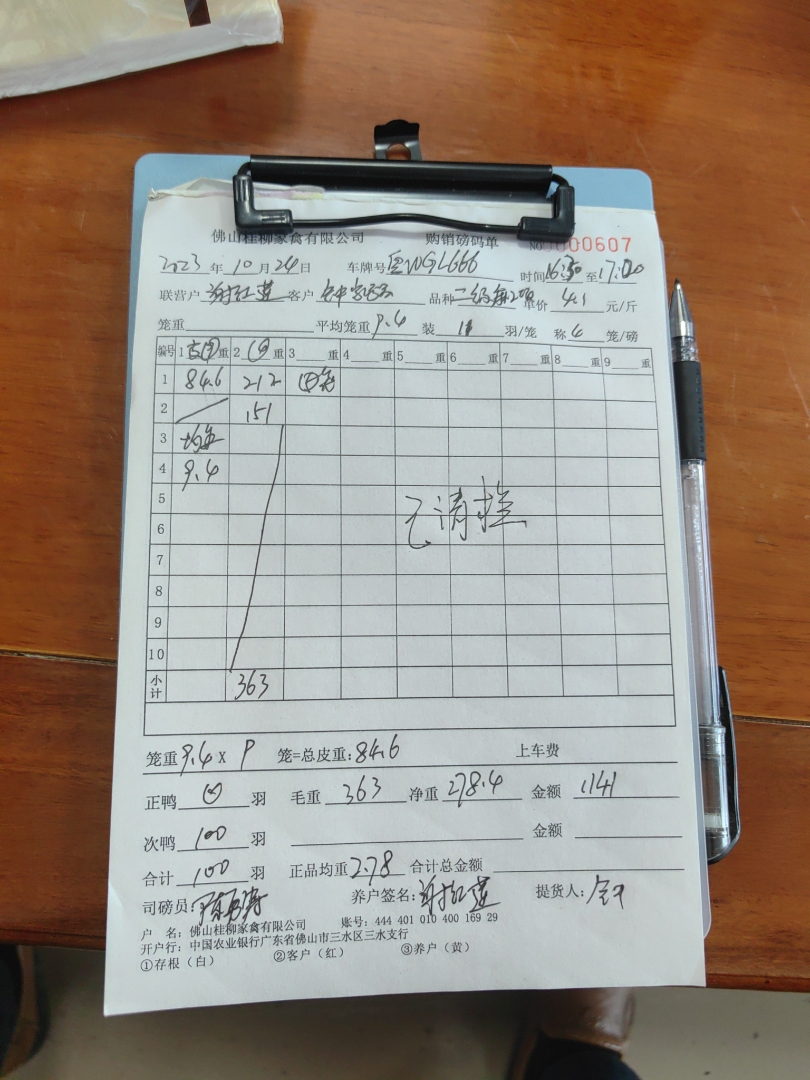 佛山桂柳家禽有限公司 购销磅码单 NO 0000607
2023 年 10 月 24 日 车牌号 粤WGL666 时间 16:30 至 17:00
联营户 谢红莲 客户 品种 单价 4.1 元/斤
笼重 平均笼重 9.4 装 11 羽/笼 称 4 笼/磅
编号 1 重 2 重 3 重 4 重 5 重 6 重 7 重 8 重 9 重
1 84.6 212
2 151
3 均重
4 9.4
5
6
7
8
9
10
小计 363
已清栏
笼重 9.4 x 9 笼=总皮重: 84.6 上车费
正鸭 羽 毛重 363 净重 278.4 金额 1141
次鸭 100 羽 金额
合计 100 羽 正品均重 2.78 合计总金额
司磅员: 养户签名: 谢红莲 提货人:
户 名: 佛山桂柳家禽有限公司 账号: 444 401 010 400 169 29
开户行: 中国农业银行广东省佛山市三水区三水支行
①存根（白） ②客户（红） ③养户（黄）